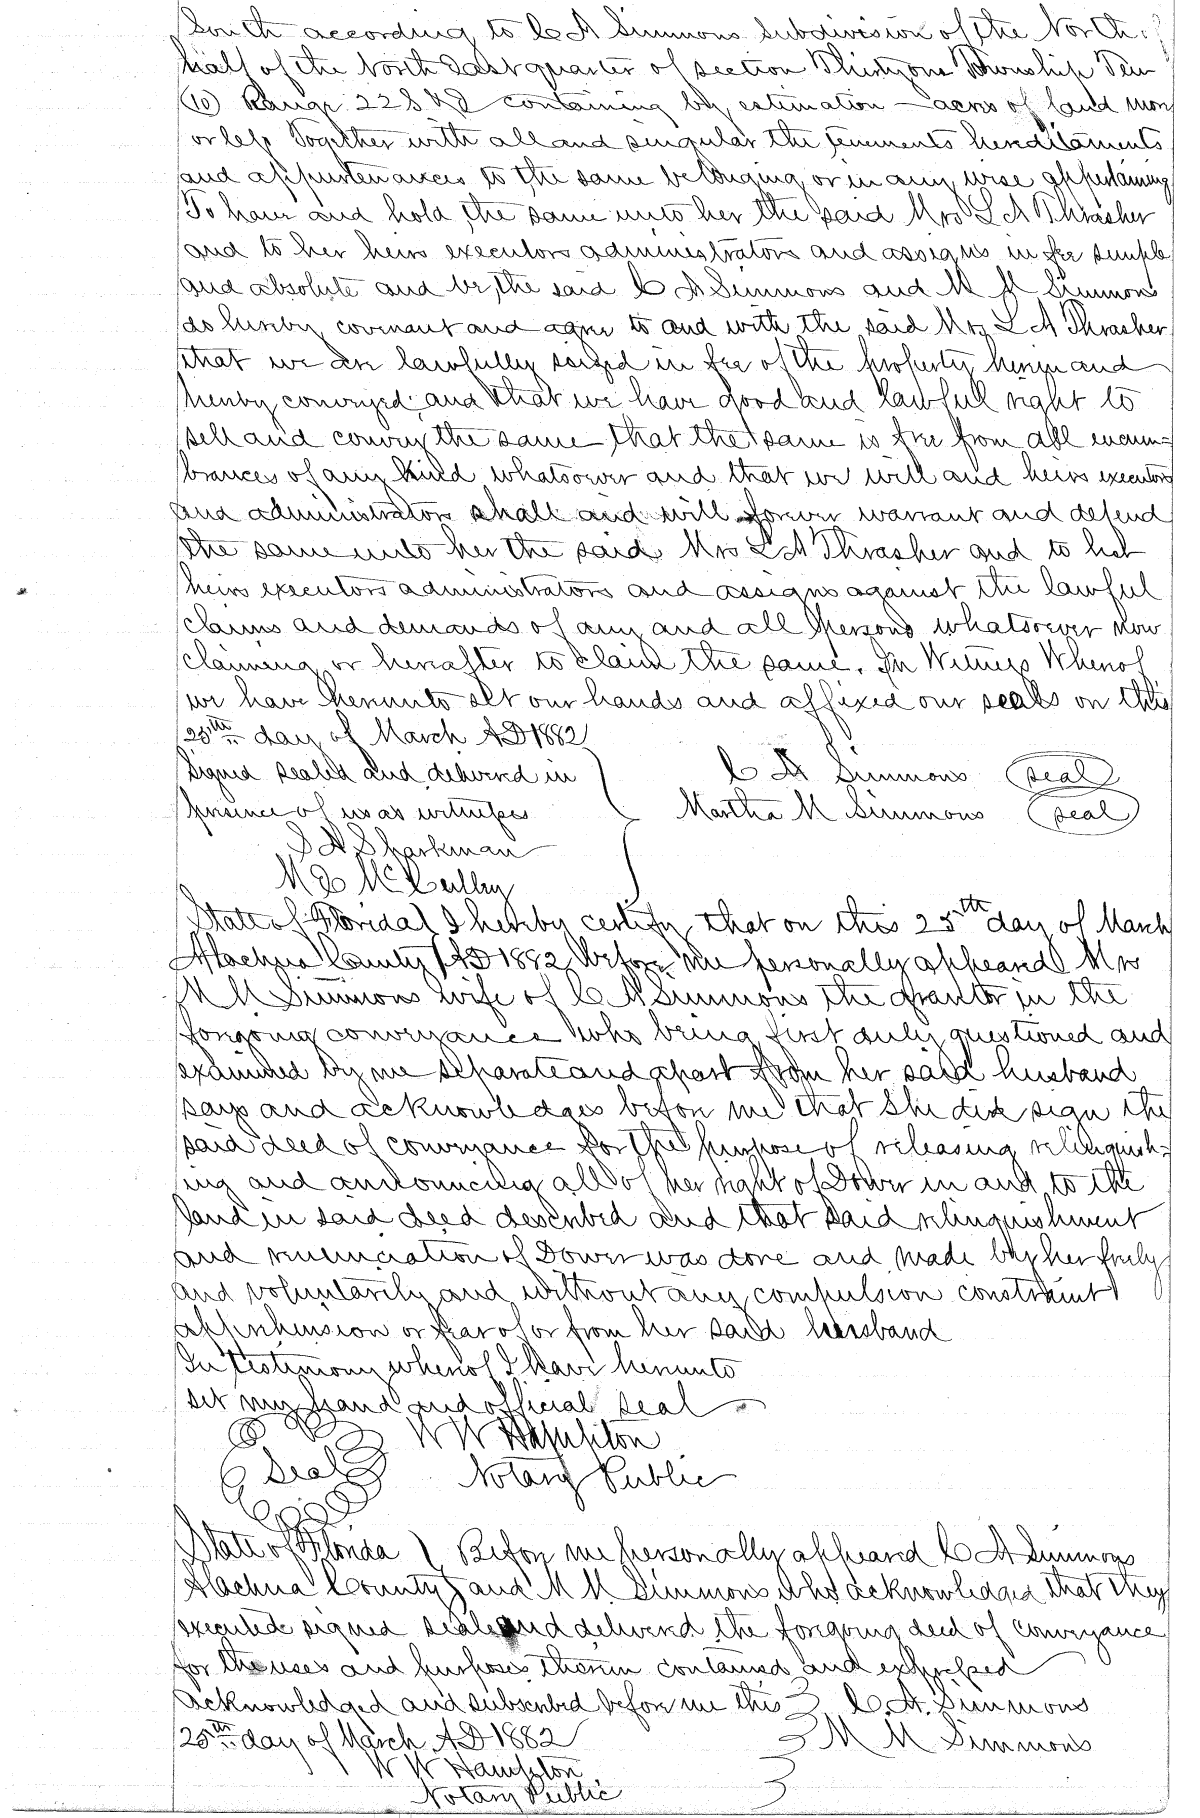 South according to C A Simmons subdivision of the North
half of the North East quarter of section Thirty one Township Ten
(10) Range 22 S & E containing by estimation — acres of land more
or less Together with all and singular the tenements hereditaments
and appurtenances to the same belonging or in any wise appertaining
To have and hold the same unto her the said Mrs L A Thrasher
and to her heirs executors administrators and assigns in fee simple
and absolute and we the said C A Simmons and M M Simmons
do hereby covenant and agree to and with the said Mrs L A Thrasher
that we are lawfully seized in fee of the property herein and
hereby conveyed; and that we have good and lawful right to
sell and convey the same that the same is free from all encum=
brances of any kind whatsoever and that we will and heirs executors
and administrators shall and will forever warrant and defend
the same unto her the said Mrs L A Thrasher and to her
heirs executors administrators and assigns against the lawful
claims and demands of any and all persons whatsoever now
claiming or hereafter to claim the same. In Witness Whereof
we have hereunto set our hands and affixed our seals on this
25th day of March AD 1882
Signed sealed and delivered in C A Simmons (seal)
presence of us as witnesses Martha M Simmons (seal)
S A Sparkman
M E McCulley
State of Florida } I hereby certify that on this 25th day of March
Alachua County } AD 1882 before me personally appeared Mrs
M M Simmons wife of C A Simmons the grantor in the
foregoing conveyance who being first duly questioned and
examined by me separate and apart from her said husband
says and acknowledges before me that she did sign the
said deed of conveyance for the purpose of releasing relinquish=
ing and announcing all of her right of Dower in and to the
land in said deed described and that said relinquishment
and renunciation of Dower was done and made by her freely
and voluntarily and without any compulsion constraint
apprehension or fear of or from her said husband
In testimony whereof I have hereunto
set my hand and official seal
W W Hampton
Seal Notary Public
State of Florida } Before me personally appeared C A Simmons
Alachua County } and M M Simmons who acknowledged that they
executed signed sealed and delivered the foregoing deed of conveyance
for the uses and purposes therein contained and expressed
Acknowledged and subscribed before me this } C. A. Simmons
25th day of March AD 1882 } M M Simmons
W W Hampton
Notary Public